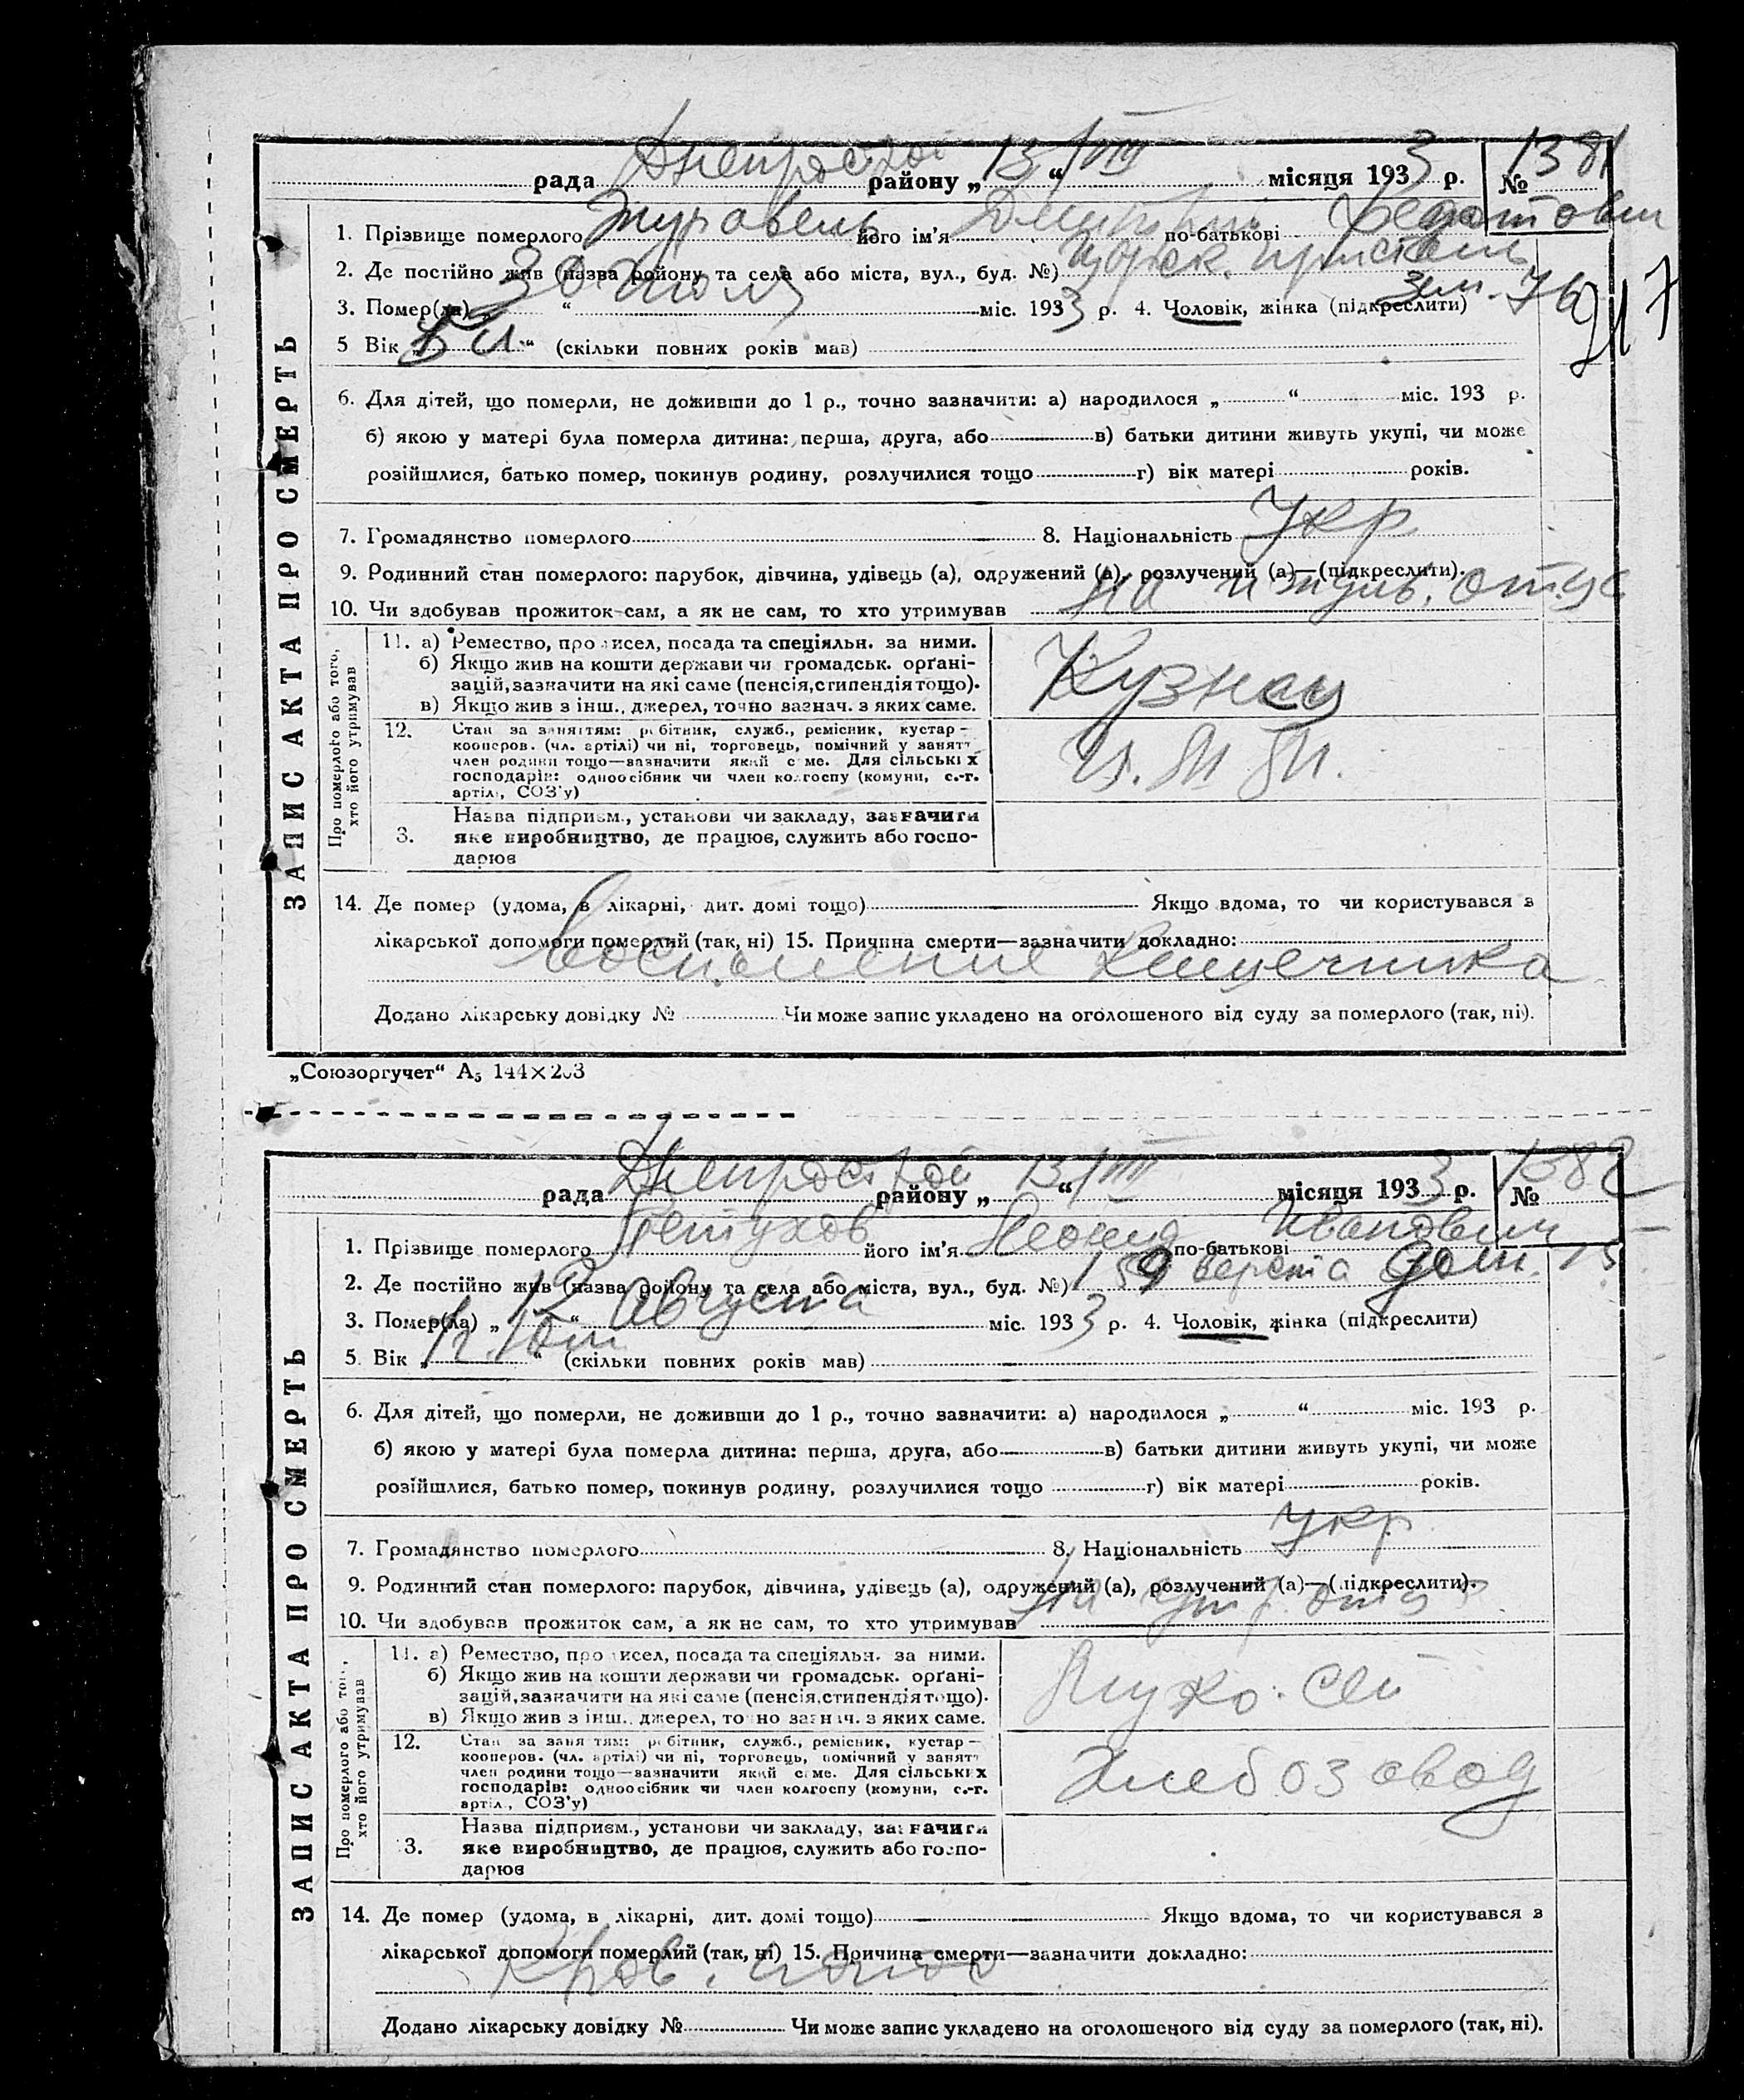 Днепрострой 13/VIII 1381
рада району „ “ місяця 1933 р. №
Журавель Дмитрий Федотович
1. Прізвище померлого його ім’я по-батькові
пристань
2. Де постійно жив (назва району та села або міста, вул., буд. №)
30 Июля
3. Помер(ла) „ “ міс. 1933 р. 4. Чоловік, жінка (підкреслити)
5 Вік „ “ (скільки повних років мав)
6. Для дітей, що померли, не доживши до 1 р., точно зазначити: а) народилося „ “ міс. 193 р.
б) якою у матері була померла дитина: перша, друга, або в) батьки дитини живуть укупі, чи може
розійшлися, батько помер, покинув родину, розлучилися тощо г) вік матері років.
7. Громадянство померлого 8. Національність Укр
9. Родинний стан померлого: парубок, дівчина, удівець (а), одружений (а), розлучений (а)—(підкреслити).
10. Чи здобував прожиток сам, а як не сам, то хто утримував На иждив. отца
Про померлого або того, хто його утримував
11. а) Ремество, промисел, посада та спеціяльн. за ними.
б) Якщо жив на кошти держави чи громадськ. орґані-
зацій, зазначити на які саме (пенсія, стипендія тощо).
в) Якщо жив з інш. джерел, точно зазнач. з яких саме.
Кузнец
12. Стан за заняттям: робітник, служб., ремісник, кустар—
кооперов. (чл. артілі) чи ні, торговець, помічний у занятт
член родини тощо—зазначити який саме. Для сільських
господарів: одноосібник чи член колгоспу (комуни, с.-г.
артілі, СОЗ’у)
3. Назва підприєм., установи чи закладу, зазначити
яке виробництво, де працює, служить або госпо-
дарює
14. Де помер (удома, в лікарні, дит. домі тощо) Якщо вдома, то чи користувався з
лікарської допомоги померлий (так, ні) 15. Причина смерти—зазначити докладно:
Воспаление Кишечника
Додано лікарську довідку № Чи може запис укладено на оголошеного від суду за померлого (так, ні).
ЗАПИС АКТА ПРО СМЕРТЬ
„Союзоргучет“ А5 144×203
Днепрострой 13/VIII 1382
рада району „ “ місяця 1933 р. №
Петухов Леонид Иванович
1. Прізвище померлого його ім’я по-батькові
159 верста дом. 15
2. Де постійно жив (назва району та села або міста, вул., буд. №)
12 Августа
3. Помер(ла) „ “ міс. 1933 р. 4. Чоловік, жінка (підкреслити)
5. Вік „ “ (скільки повних років мав)
6. Для дітей, що померли, не доживши до 1 р., точно зазначити: а) народилося „ “ міс. 193 р.
б) якою у матері була померла дитина: перша, друга, або в) батьки дитини живуть укупі, чи може
розійшлися, батько помер, покинув родину, розлучилися тощо г) вік матері років.
7. Громадянство померлого 8. Національність Укр
9. Родинний стан померлого: парубок, дівчина, удівець (а), одружений (а), розлучений (а)—(підкреслити).
10. Чи здобував прожиток сам, а як не сам, то хто утримував На отца
Про померлого або того, хто його утримував
11. а) Ремество, промисел, посада та спеціяльн. за ними.
б) Якщо жив на кошти держави чи громадськ. орґані-
зацій, зазначити на які саме (пенсія, стипендія тощо).
в) Якщо жив з інш. джерел, точно зазнач. з яких саме.
12. Стан за заняттям: робітник, служб., ремісник, кустар—
кооперов. (чл. артілі) чи ні, торговець, помічний у занятт
член родини тощо—зазначити який саме. Для сільських
господарів: одноосібник чи член колгоспу (комуни, с.-г.
артіл., СОЗ’у)
Хлебозавод
3. Назва підприєм., установи чи закладу, зазначити
яке виробництво, де працює, служить або госпо-
дарює
14. Де помер (удома, в лікарні, дит. домі тощо) Якщо вдома, то чи користувався з
лікарської допомоги померлий (так, ні) 15. Причина смерти—зазначити докладно:
Кров. понос
Додано лікарську довідку № Чи може запис укладено на оголошеного від суду за померлого (так, ні).
ЗАПИС АКТА ПРО СМЕРТЬ